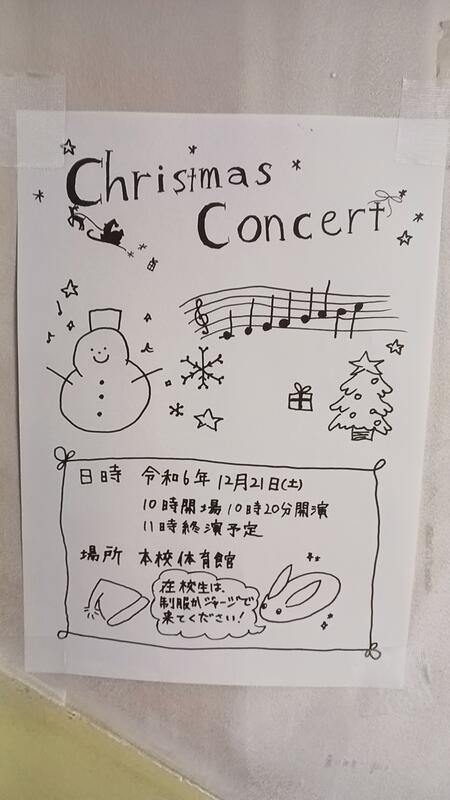 Christmas
Concert
日時 令和6年 12月21日(土)
10時開場10時20分開演
11時終演予定
場所 本校体育館
在校生は、
制服かジャージで
来てください!